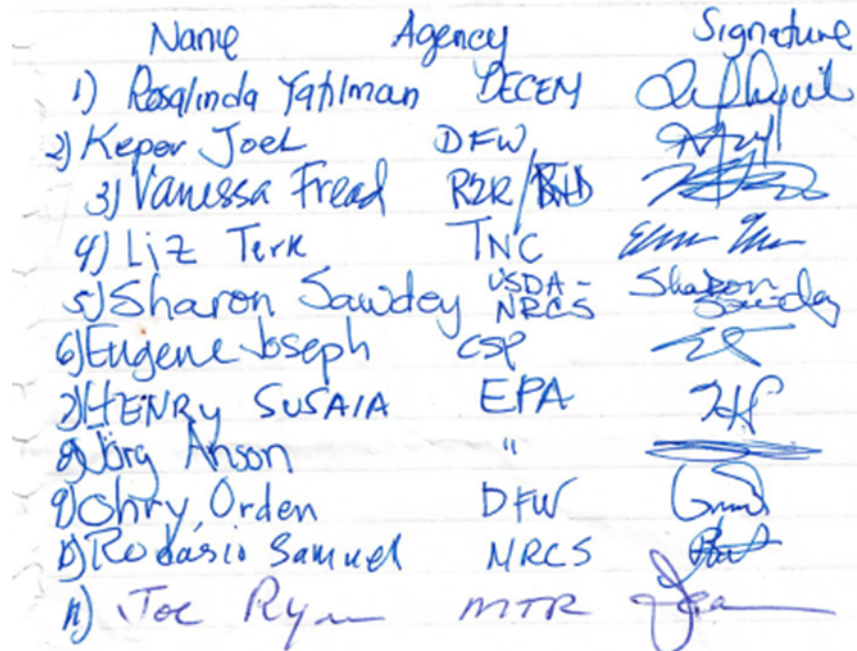 Name Agency Signature
1) Rosalinda Yatilman DECEM
2) Kepor Joel DFW
3) Vanessa Fread R2R/
4) Liz Terk TNC
5) Sharon Sawdey USDA-NRCS Sharon Sawdey
6) Eugene Joseph CSP
7) HENRY SUSAIA EPA
8) Jorg Anson "
9) Ohry Orden DFW
10) Rodasio Samuel NRCS
11) Joe Ryan MTR